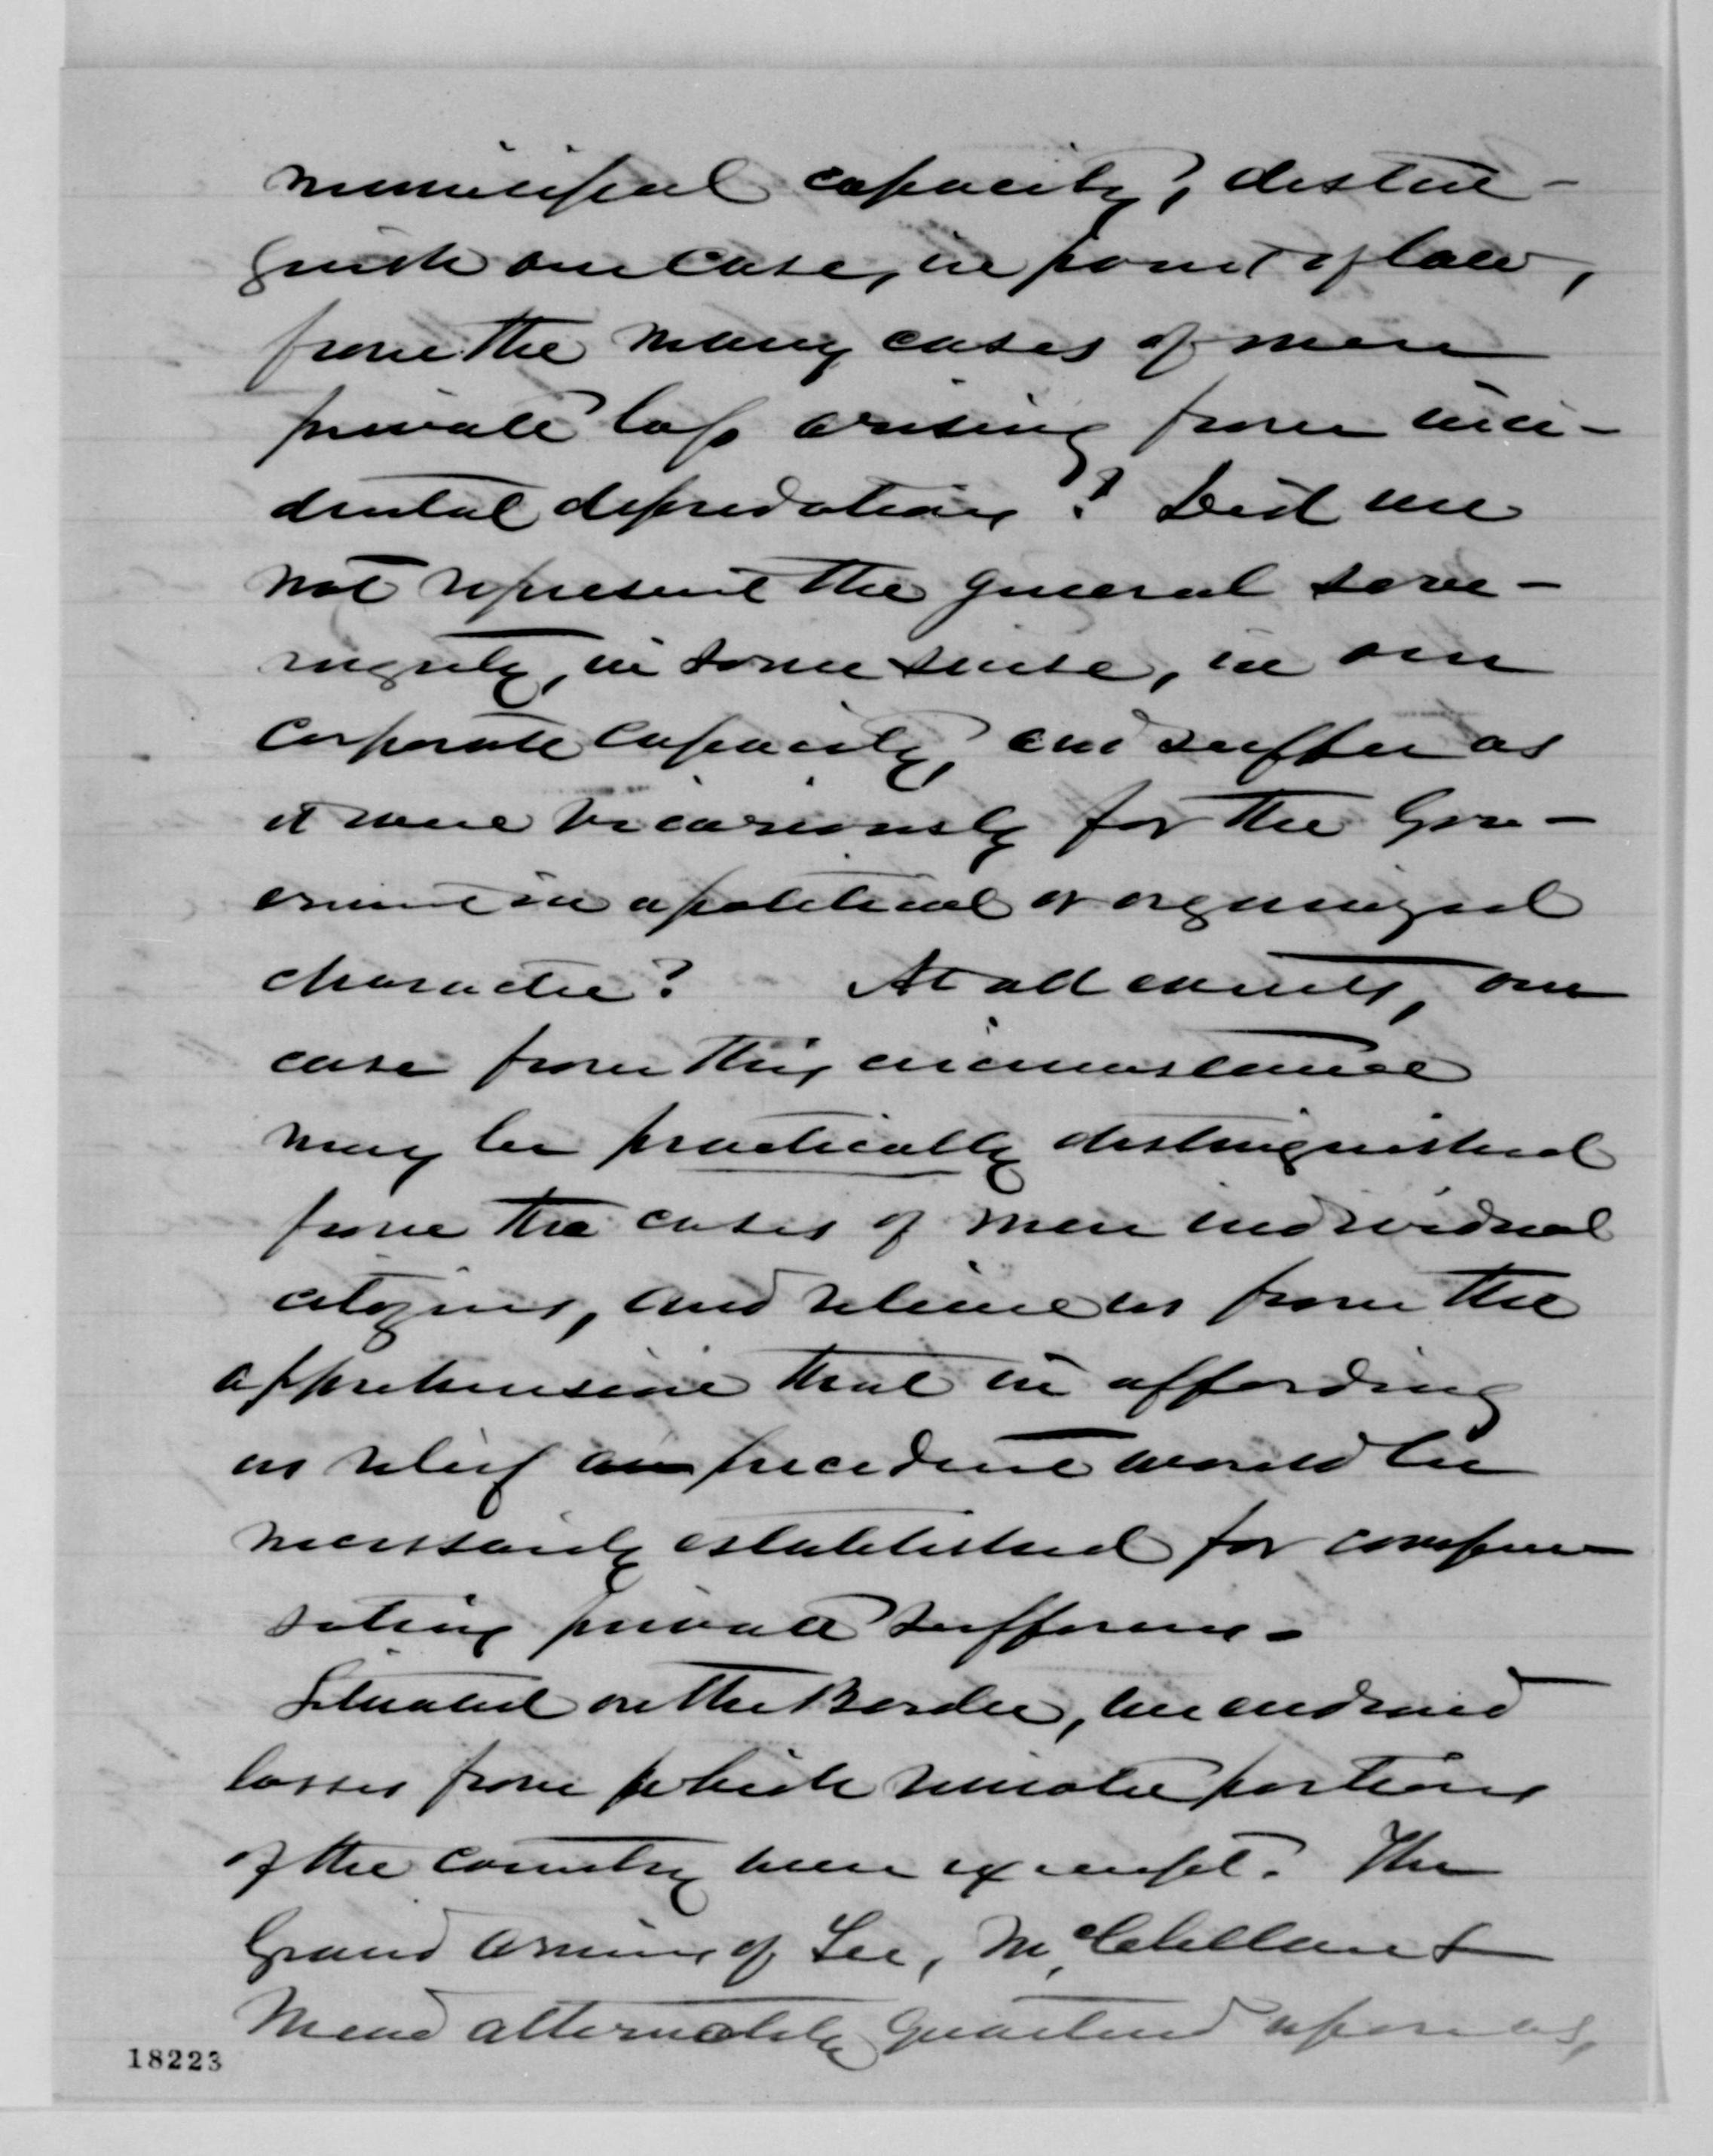 municipal capacity, distin-
guish our case, in point of law,
from the many cases of mere
private loss arising from inci-
dental depredations? Did we
not represent the general sove-
reignty, in some sense, in our
corporate capacity, and suffer as
it were vicariously for the Gov-
ernment in a political or organized
character? At all events, our
case from this circumstance
may be practically distinguished
from the cases of mere individual
citizens, and relieve us from the
apprehension that in affording
us relief a precedent would be
necessarily established for compen-
sating private sufferers.
Situated on the Border, we endured
losses from which remote portions
of the country were exempt. The
Grand armies of Lee, McClellan &
Mead alternately quartered upon us,
18223